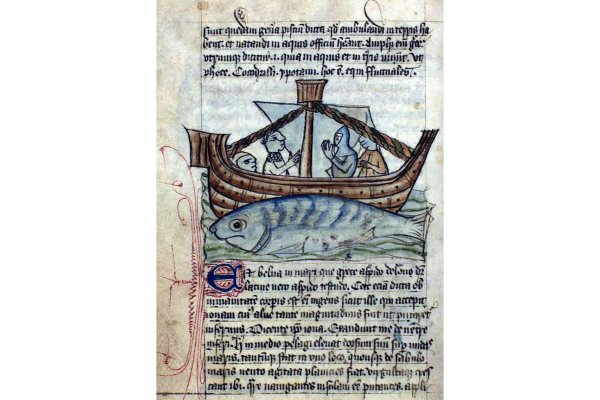 sunt quedam gena pisciu dicta qd ambulandi in terris ha
bent. et natandi in aquis officiu heant. Amphi em gre
utrumque dicitur .i. quia in aquis et in tris uiuut. vt
phoce. Cocodrilli. ypotami. hoc e equi fluctuales.
Est belua in mari que grece aspido delone dr
latine vero aspido testudo. Cete etia dicta ob
inmanitate corpis est em ingens sicut ille qui excepit
ionam cui alue tante magnitudinis fuit ut putaret
infernus. Dicente ipo iona. Exaudiuit me de ventre
inferi. in medio pelagi eleuat dorsum suu sup undas
maris. tantumque stat in uno loco. quousque de sabulo
maris vento agitata planicies fiat. virgultaque cres
cant ibi. nauigantes insulam ee putantes. appli